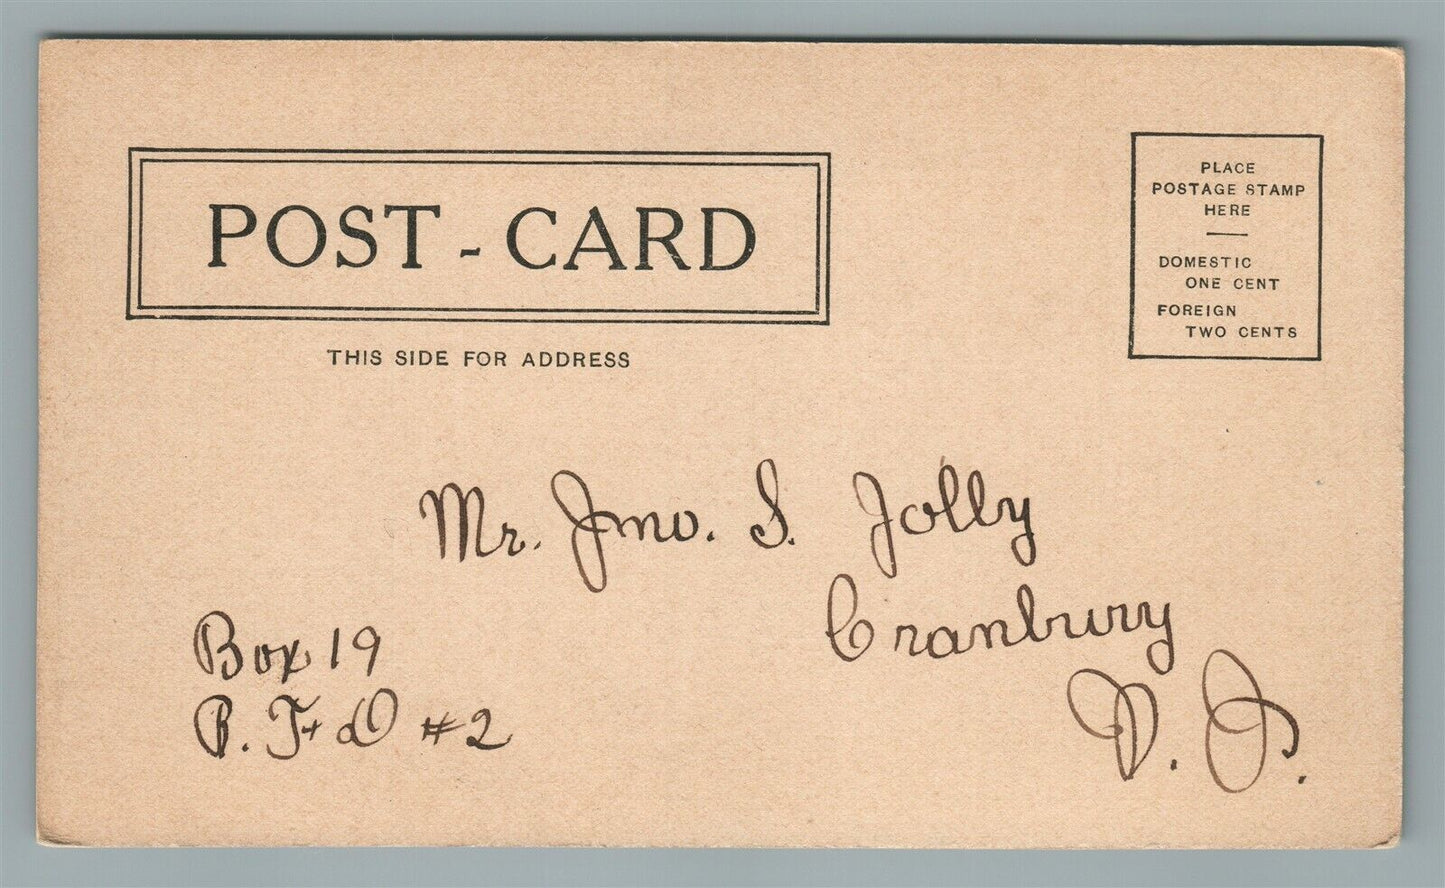 POST-CARD
THIS SIDE FOR ADDRESS
PLACE
POSTAGE STAMP
HERE
DOMESTIC
ONE CENT
FOREIGN
TWO CENTS
Mr. Jno. S. Jolly
Cranbury
N. J.
Box 19
R. F. D #2